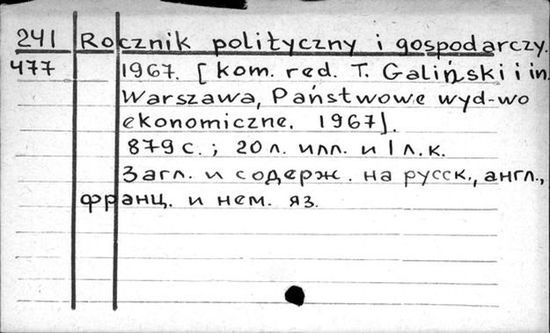 241 Rocznik polityczny i gospodarczy.
477 1967. [kom. red. T. Galiński i in.
Warszawa, Państwowe wyd-wo
ekonomiczne. 1967].
879 с.; 20 л. илл. и 1 л. к.
Загл. и содерж. на русск., англ.,
франц. и нем. яз.